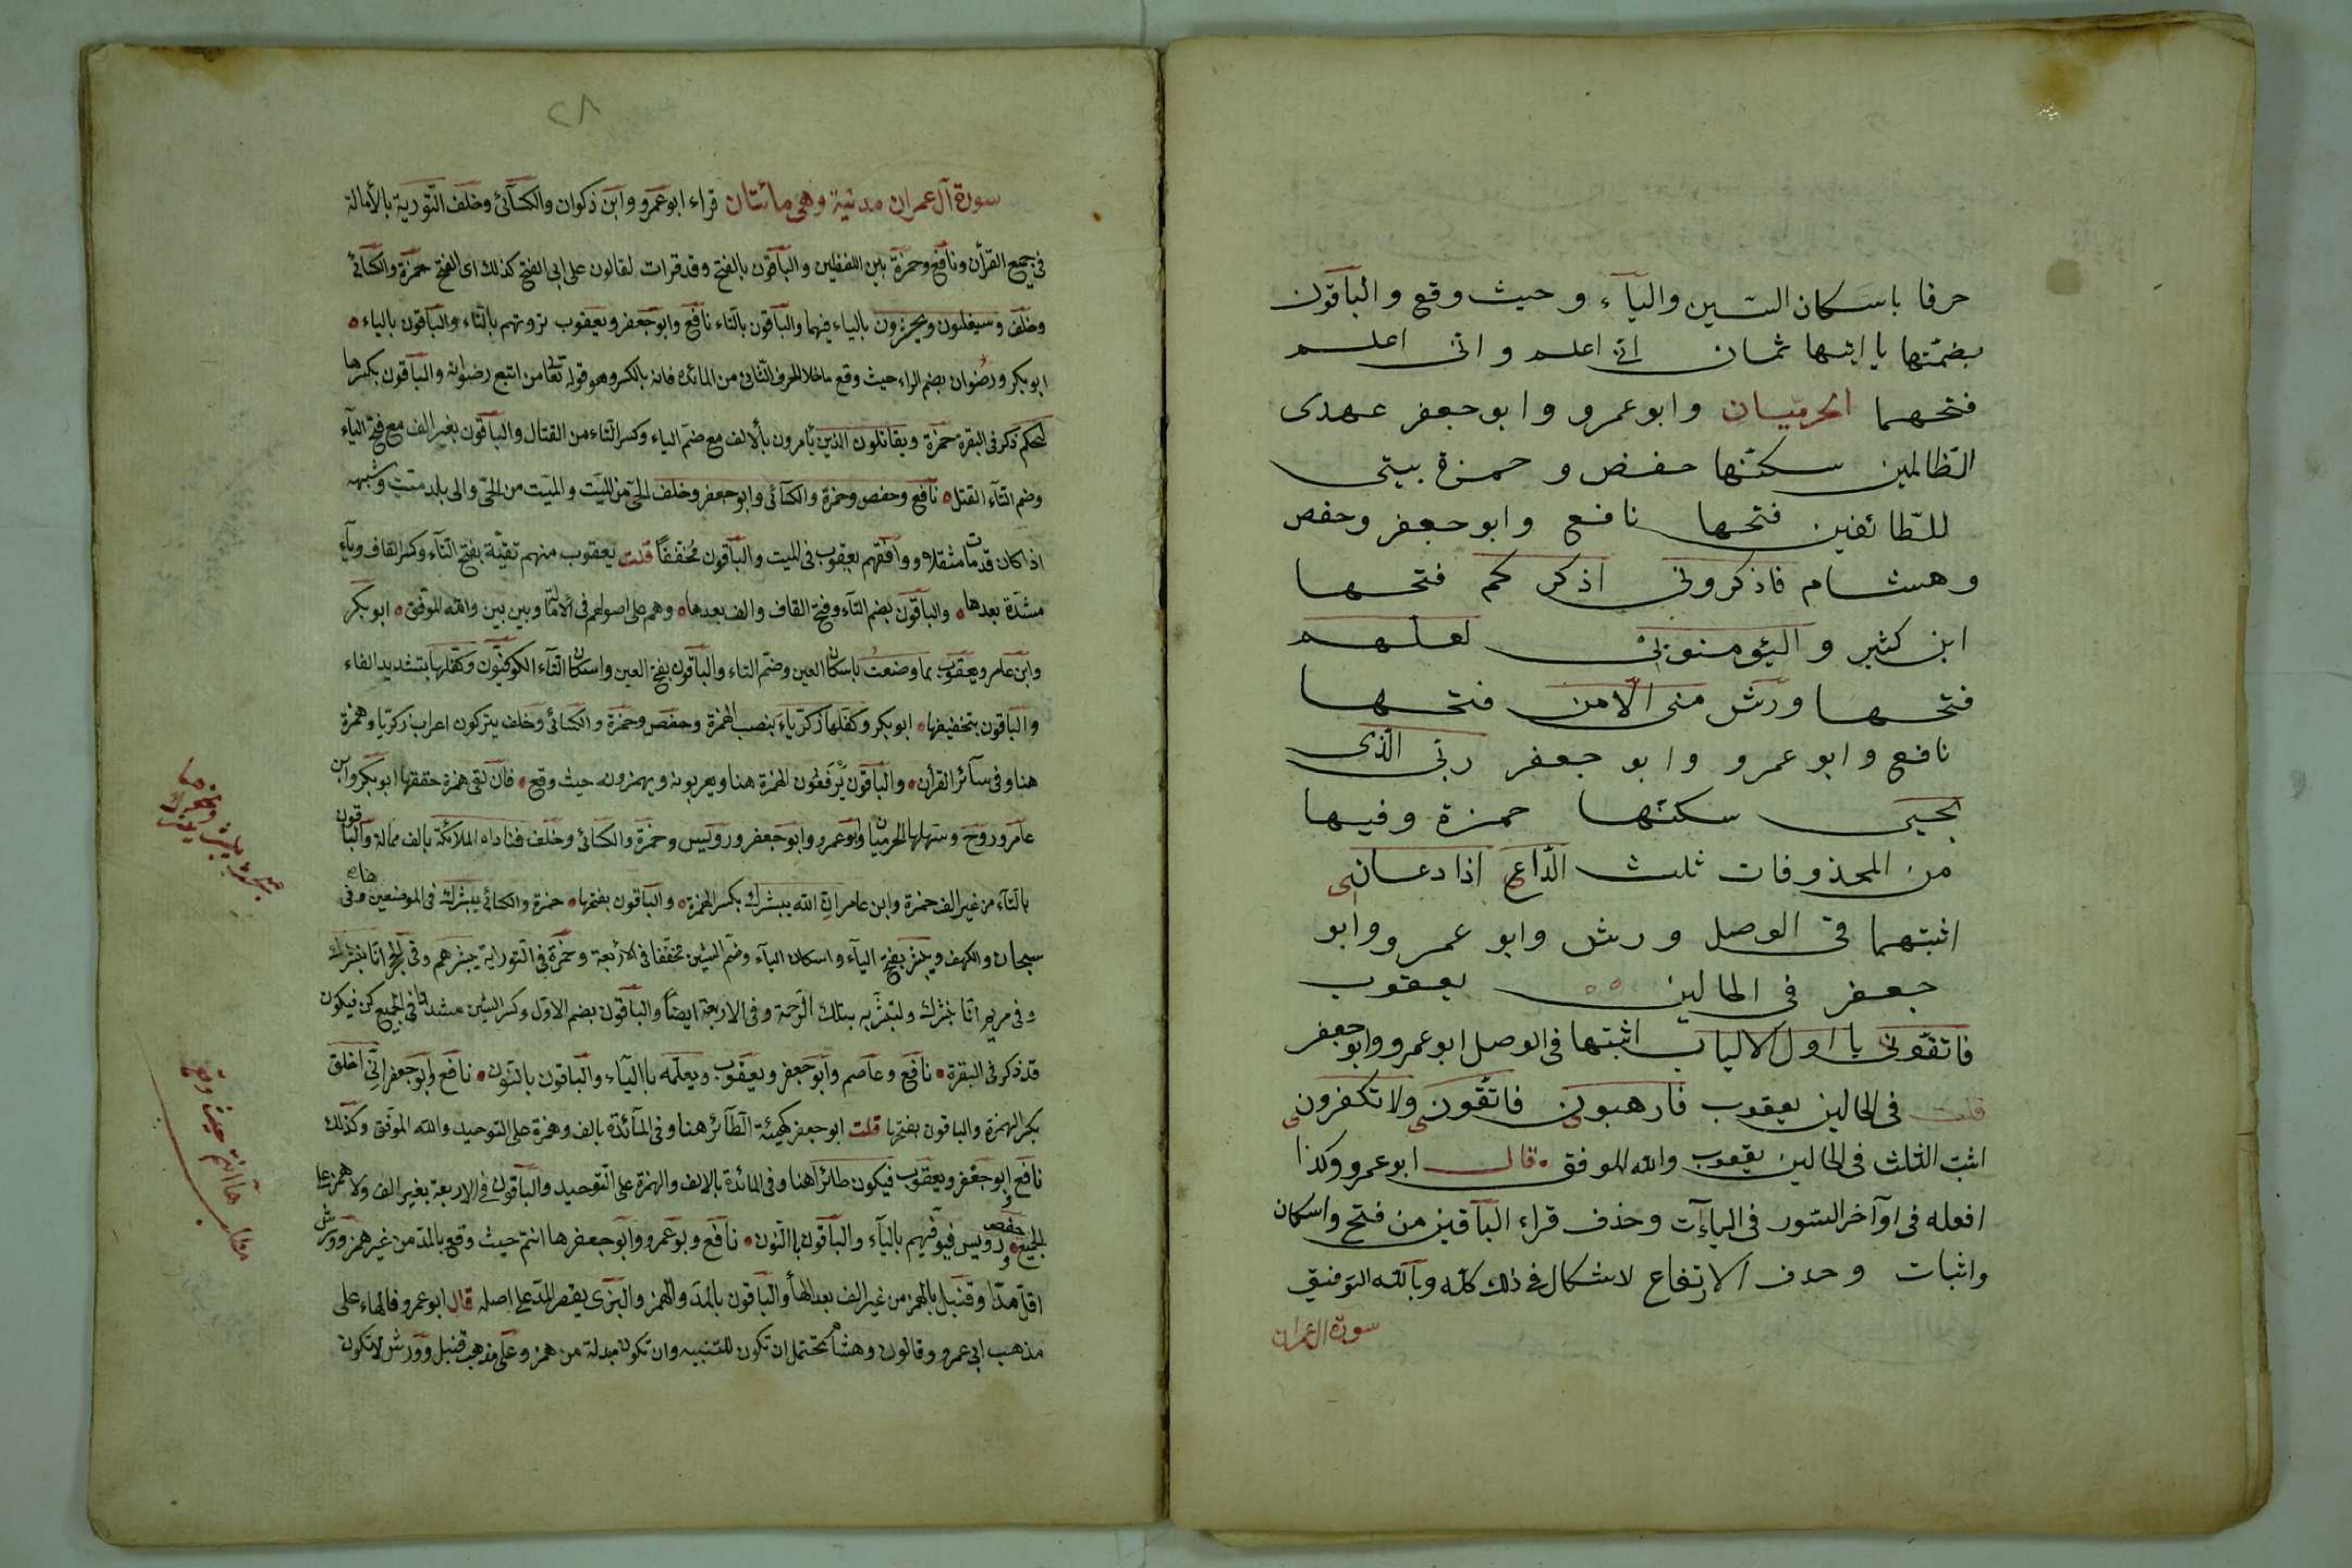 حرفا باسكان السّين واليآء وحيث وقع والبآقون
بضمّتها يا ايتها ثمان انّى اعلم وانّى اعلم
فتحهما الحرميّان وابوعمرو وابوجعفر عهدى
الظّالمين سكنّها حفض وحمزة بيتى
للطّائفين فتحها نافع وابوجعفر وحفص
وهشام فاذكرونى اذكركم فتحها
ابن كثير واليؤمنوبى لعلّهم
فتحها ورش منى الّامن فتحها
نافع وابوعمرو وابوجعفر ربّى الّذى
يحيى سكنّها حمزة وفيها
من المحذوفات ثلث الدّاعى اذا دعانى
اثبتهما فى الوصل ورش وابوعمرو وابو
جعفر فى الحالين يعقوب
فاتقونى يا اولى الالباب اثبتها فى الوصل ابوعمرو وابوجعفر
قلت فى الحالين يعقوب فارهبونى فاتّقونى ولا تكفرونى
اثبت الثلث فى الحالين يعقوب والله الموفق قال ابوعمرو وكذا
افعله فى اوآخر السّور فى الياءآت وحذف قراء البآقين من فتح واسكان
واثبات وحدف الارتفاع لاشكال فى ذلك كلّه وبآلله التوفيق
سورة ال عمران
٢٨
سورة آل عمران مدنية وهى مائتان قراء ابوعمرو وابن ذكوان والكسآئى وخلف التّورية بالأمالة
فى جميع القرأن ونافع وحمزة بين اللفظين والبآقون بالفتح وقد قرات لقالون على ابى الفتح كذلك اى الفتح حمزة والكسآئى
وخلف وسيغلبون ويحشرون بالياء فيهما والبآقون بالتاء نافع وابوجعفر ويعقوب ترونهم بالتّاء والبآقون بالياء
ابوبكر ورضوان بضم الراء حيث وقع ماخلا الحرف الثّانى من المائدة فانه بالكسر وهو قوله تعالى من اتبع رضوانه والبآقون بكسرها
ليحكم ذكر فى البقرة حمزة ويقاتلون الذين يأمرون بألالف مع ضمّ الياء وكسر التّاء من القتال والبآقون بغير الف مع فتح اليآء
وضم التآء القتل نافع وحفص وحمزة والكسآئى وابوجعفر وخلف الحىّ من الميّت والميّت من الحىّ والى بلد ميّت وشبهه
اذا كان قد مات مثقلا ووآفقهم يعقوب فى الميت والبآقون مخففاً قلت يعقوب منهم تقيّة بفتح التآء وكسر القاف ويآء
مشدّة بعدها والبآقون بضم التآء وفتح القاف والف بعدها وهم على اصولهم فى الامالة وبين بين والله الموفق ابوبكر
وابن عامر ويعقوب بما وضعت باسكان العين وضمّ التاء والبآقون بفتح العين واسكان التآء الكوفيّون وكفّلها بتشديد الفاء
والبآقون بتخفيفها ابوبكر وكفّلها زكريّاءَ بنصب الهمزة وحفص وحمزة والكسائى وخلف يتركون اعراب زكريّا وهمزة
هنا وفى سآئر القرأن والبآقون يرفعون الهمزة هنا ويعربونه ويهمزونه حيث وقع فان لقى همزة حققها ابوبكر وابن
عآمر وروح وسهلها الحرميّان وابوعمرو وابوجعفر ورويس وحمزة والكسائى وخلف فناداه الملآئكة بالف ممالة والباقون
بالتآء من غير الف حمزة وابن عامر ان الله يبشرك بكسر الهمزة والبآقون بفتحها حمزة والكسائى يبشرك فى الموضعين هنا وفى
سبحان والكهف ويبشر بفتح اليآء واسكان البآء وضمّ الشين مخفّفا فى الاربعة وحمزة فى التوراية يبشرهم وفى الحجر انّا نبشرك
وفى مريم انّا نبشرك ولتبشّر به بيتلك الترجمة وفى الاربعة ايضاً والبآقون بضم الاوّل وكسر الشين مشددا فى الجميع كن فيكون
قد ذكر فى البقرة نافع وعاصم وابوجعفر ويعقوب ويعلّمه بااليآء والبآقون بالنون نافع وابوجعفر انّى اخلق
بكسر الهمزة والباقون بفتحها قلت ابوجعفر كهيئة الطّآئر هنا وفى المآئدة بالف وهمزة على التوحيد والله الموفق وكذلك
نافع وابوجعفر ويعقوب فيكون طائرا هنا وفى المائدة بالالف والهمزة على التّوحيد والبآقون فى الاربعة بغير الف ولا همز على
الجمع حفص ورويس فيوفّيهم باليآء والبآقون بالنّون نافع وبوعمرو وابوجعفر ها انتم حيث وقع بالمدّ من غير همز وورش
اقلّ مدّا وقنبل بالهمز من غير الف بعد الهأ والبآقون بالمدّ والهمز والبزى يقصر المدّ على اصله قال ابوعمرو فالهاء على
مذهب ابى عمرو وقالون وهشام تحتمل ان تكون للتنبيه وان تكون مبدلة من همزة وعلى مذهب قنبل وورش لا تكون